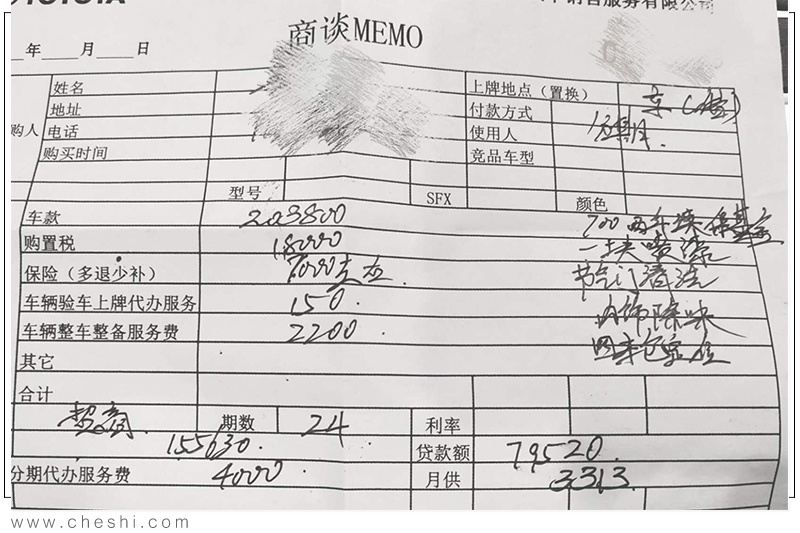 TOYOTA
销售服务有限公司
年 月 日
商谈MEMO
购人
姓名
上牌地点（置换）
京
地址
付款方式
分期
电话
使用人
购买时间
竞品车型
型号
SFX
颜色
车款
203800
700 两年换
购置税
18000
一块喷漆
保险（多退少补）
7000左右
节气门清洗
车辆验车上牌代办服务
150
内饰除味
车辆整车整备服务费
2200
其它
合计
期数
24
利率
155630
贷款额
79520
分期代办服务费
4000
月供
3313
www.cheshi.com